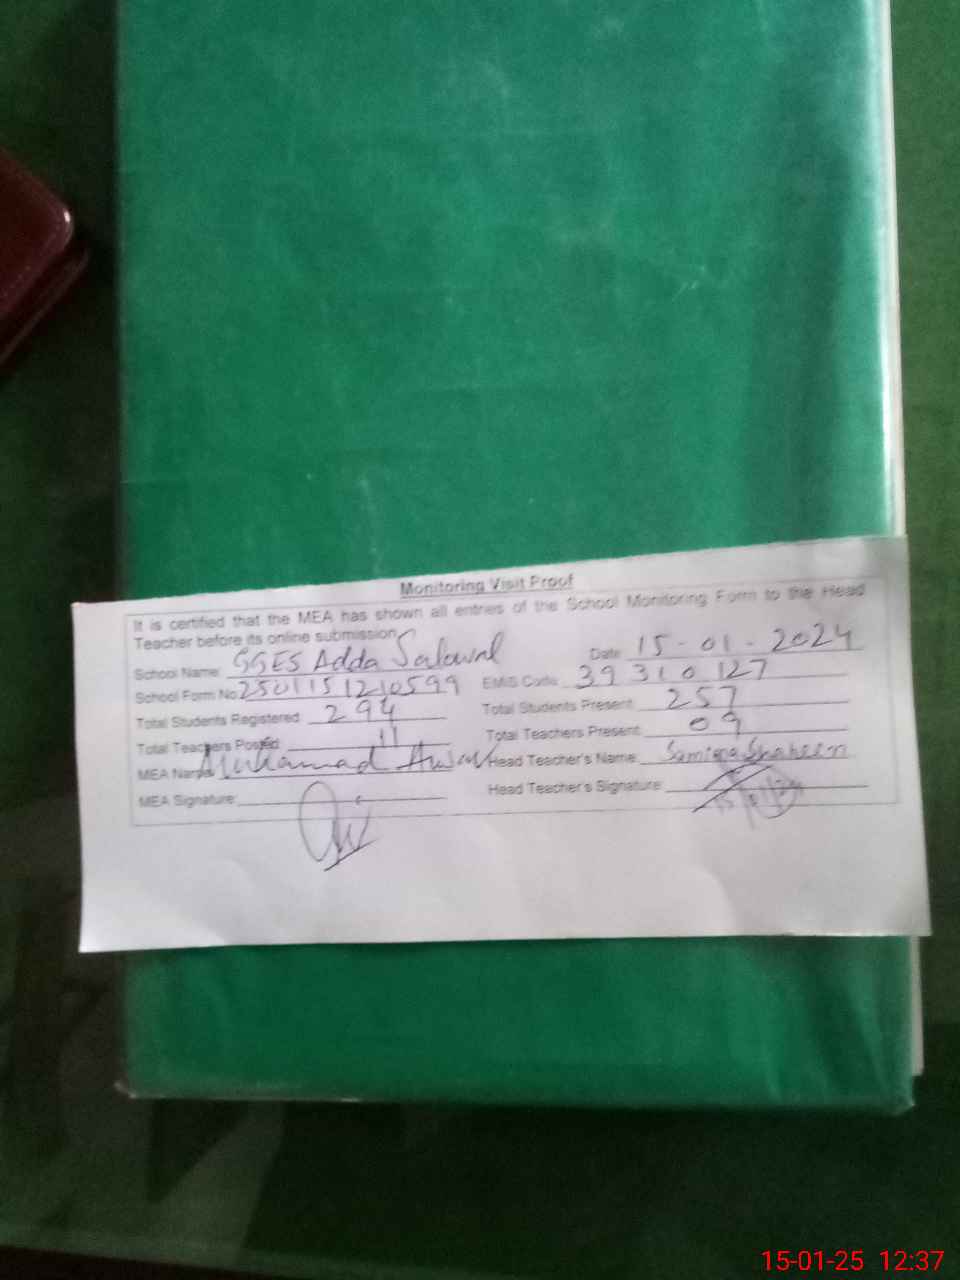 Monitoring Visit Proof
It is certified that the MEA has shown all entries of the School Monitoring Form to the Head
Teacher before its online submission.
School Name: GGES Adda Salowal Date: 15-01-2024
School Form No: 2501151210599 EMIS Code: 39310127
Total Students Registered: 294 Total Students Present: 257
Total Teachers Posted: 11 Total Teachers Present: 09
MEA Name: Muhammad Head Teacher's Name: Samina Shaheen
MEA Signature: Head Teacher's Signature:
15-01-25 12:37